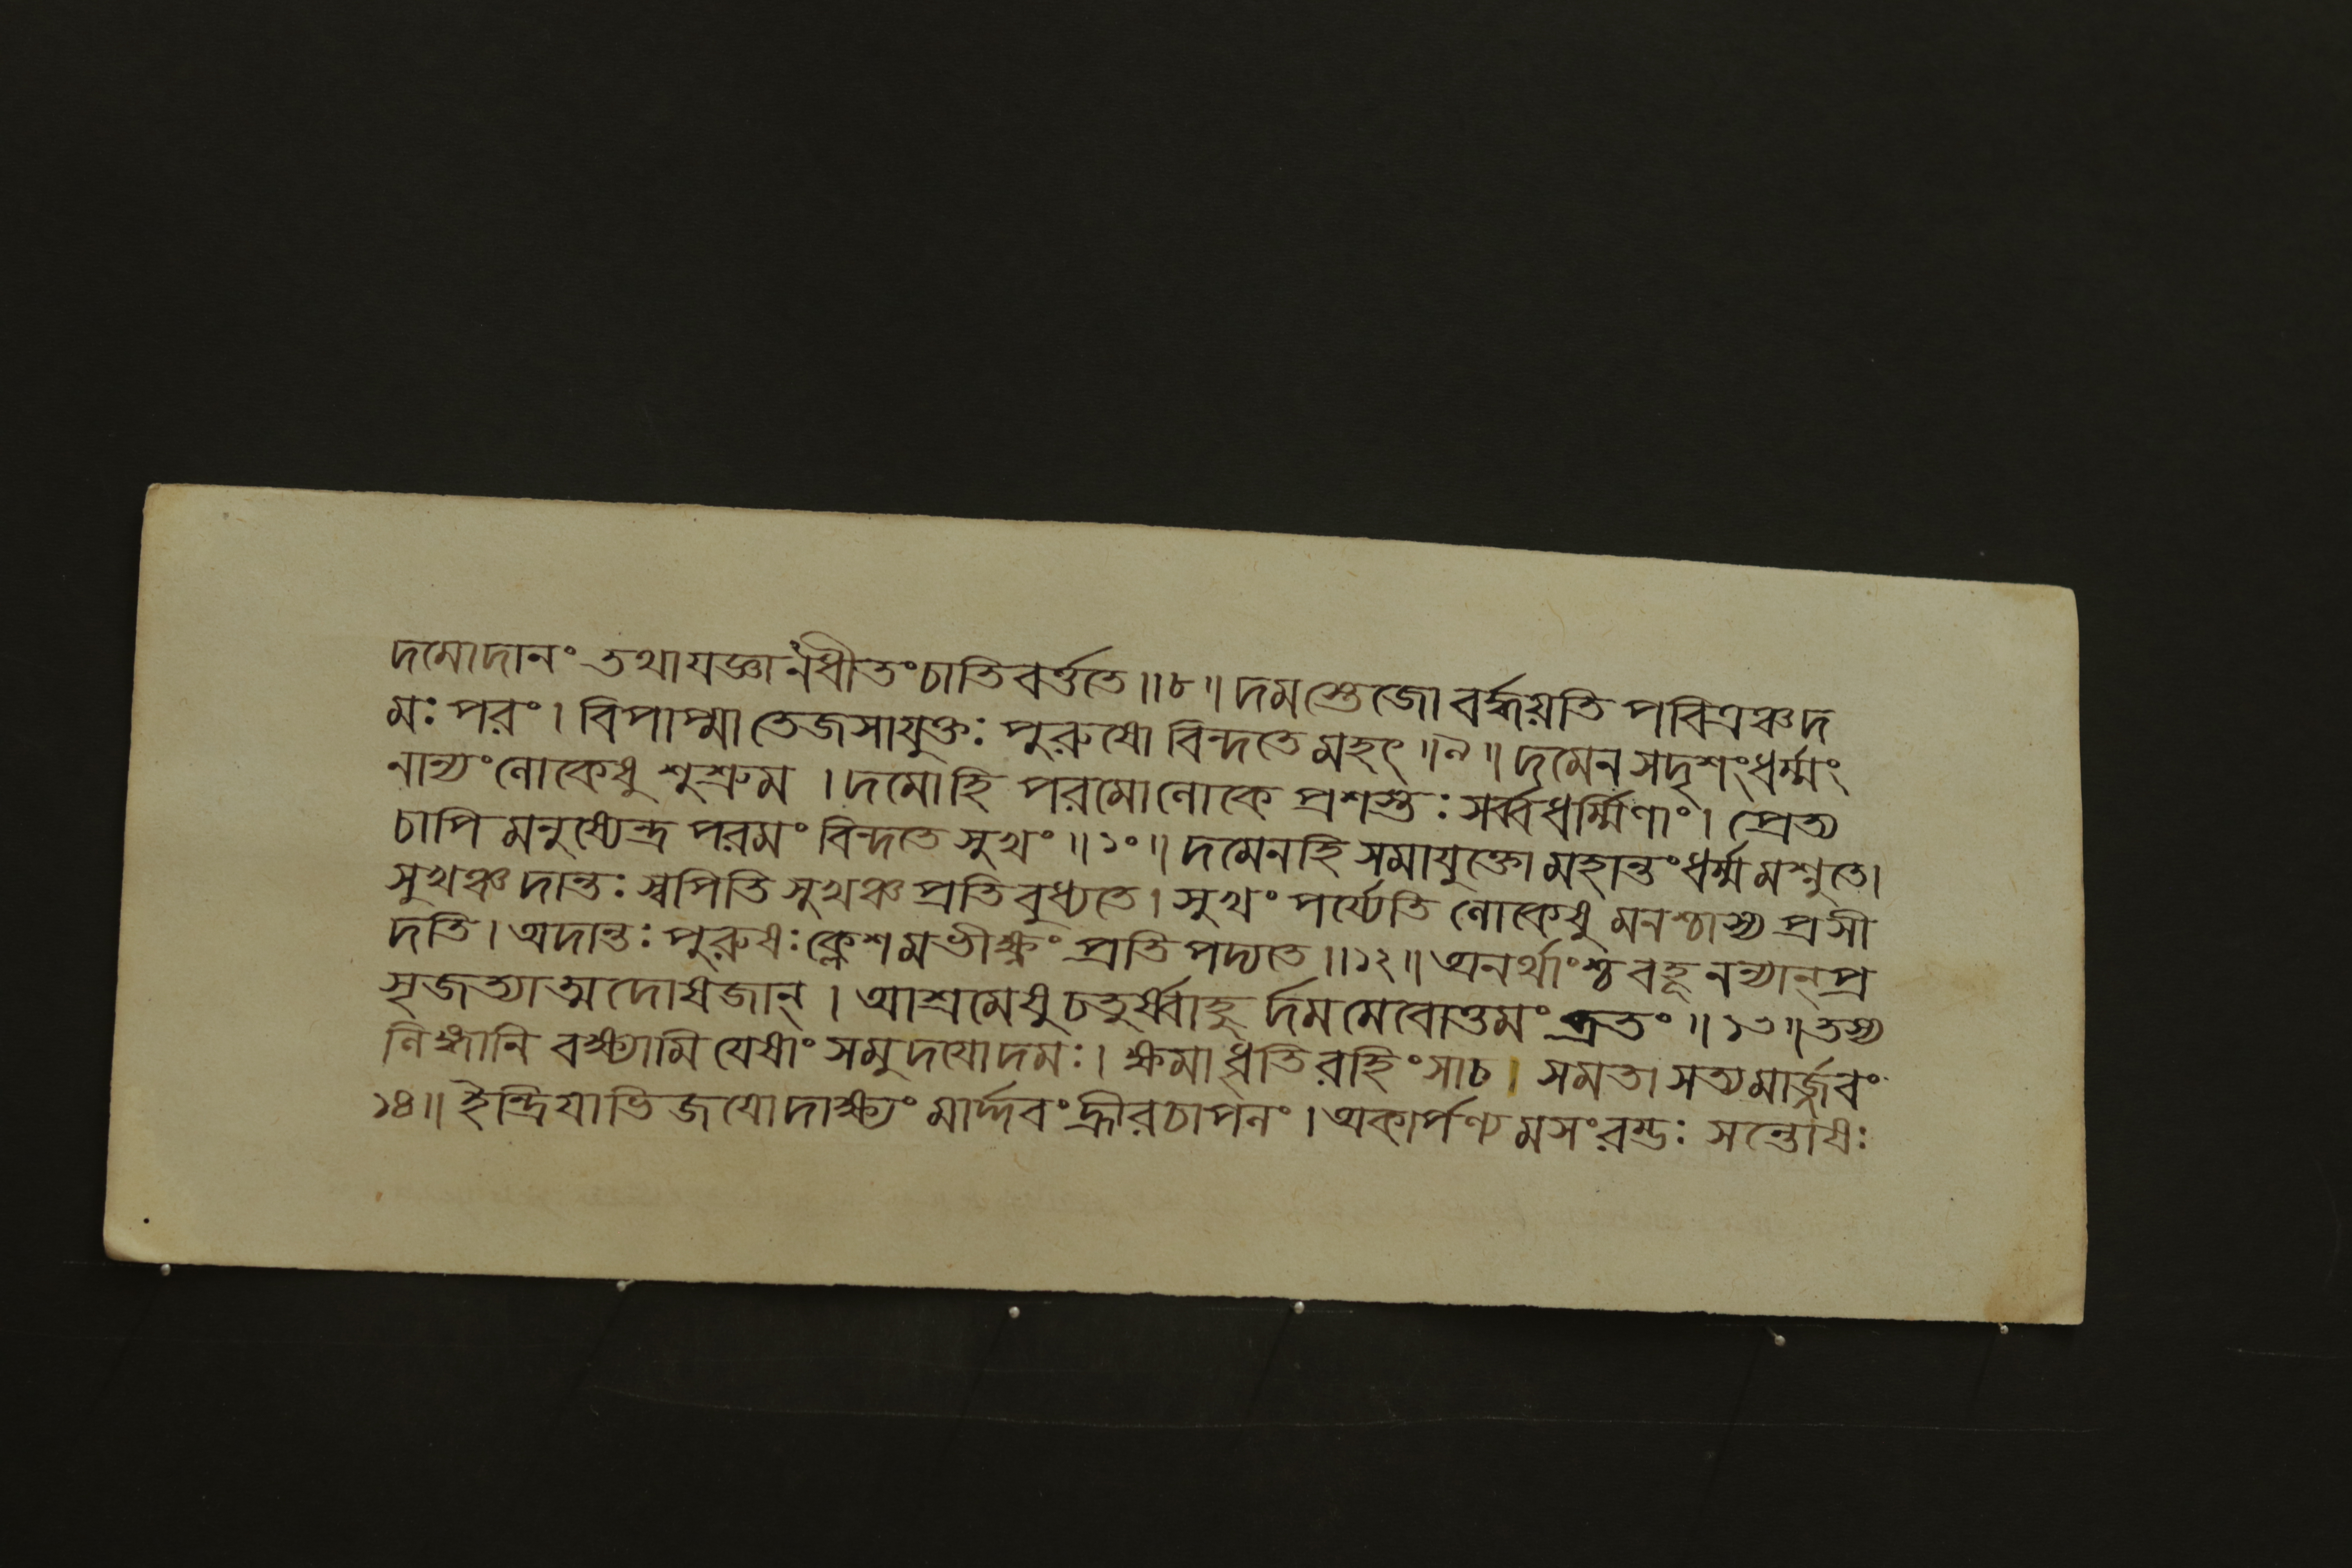 দমোদানং তথাযজ্ঞানধীতংচাতিবর্ত্ততে॥৮॥দমস্তেজো বর্দ্ধয়তি পবিত্রঞ্চদ
মঃ পরং। বিপাপ্মা তেজসাযুক্তঃ পুরুষো বিন্দতে মহৎ॥৯॥দমেন সদৃশংধর্ম্মং
নান্যংলোকেষু শুশ্রুম। দমোহি পরমোলোকে প্রশস্তঃ সর্ব্বধর্ম্মিণাং। প্রেত্য
চাপি মনুষ্যেন্দ্র পরমং বিন্দতে সুখং॥১০॥দমেনহি সমাযুক্তো মহান্তংধর্ম্মমশ্নুতে।
সুখঞ্চ দান্তঃ স্বপিতি সুখঞ্চ প্রতিবুধ্যতে। সুখং পর্য্যেতি লোকেষু মনশ্চাস্য প্রসী
দতি। অদান্তঃ পুরুষঃ ক্লেশমভীক্ষ্ণং প্রতিপদ্যতে॥১২॥অনর্থাংশ্চ বহূনন্যান্ প্র
সৃজত্যাত্মদোষজান্। আশ্রমেষু চতুর্ষ্বাহু র্দমমেবোত্তমং ব্রতং॥১৩॥তস্য
লিঙ্গানি বক্ষ্যামি যেষাং সমুদযোদমঃ। ক্ষমাধৃতিরহিংসাচ। সমতা সত্যমার্জ্জবং
১৪॥ইন্দ্রিযাভিজযোদাক্ষ্যং মার্দ্দবং হ্রীরচাপলং। অকার্পণ্যমসংরম্ভঃ সন্তোষঃ